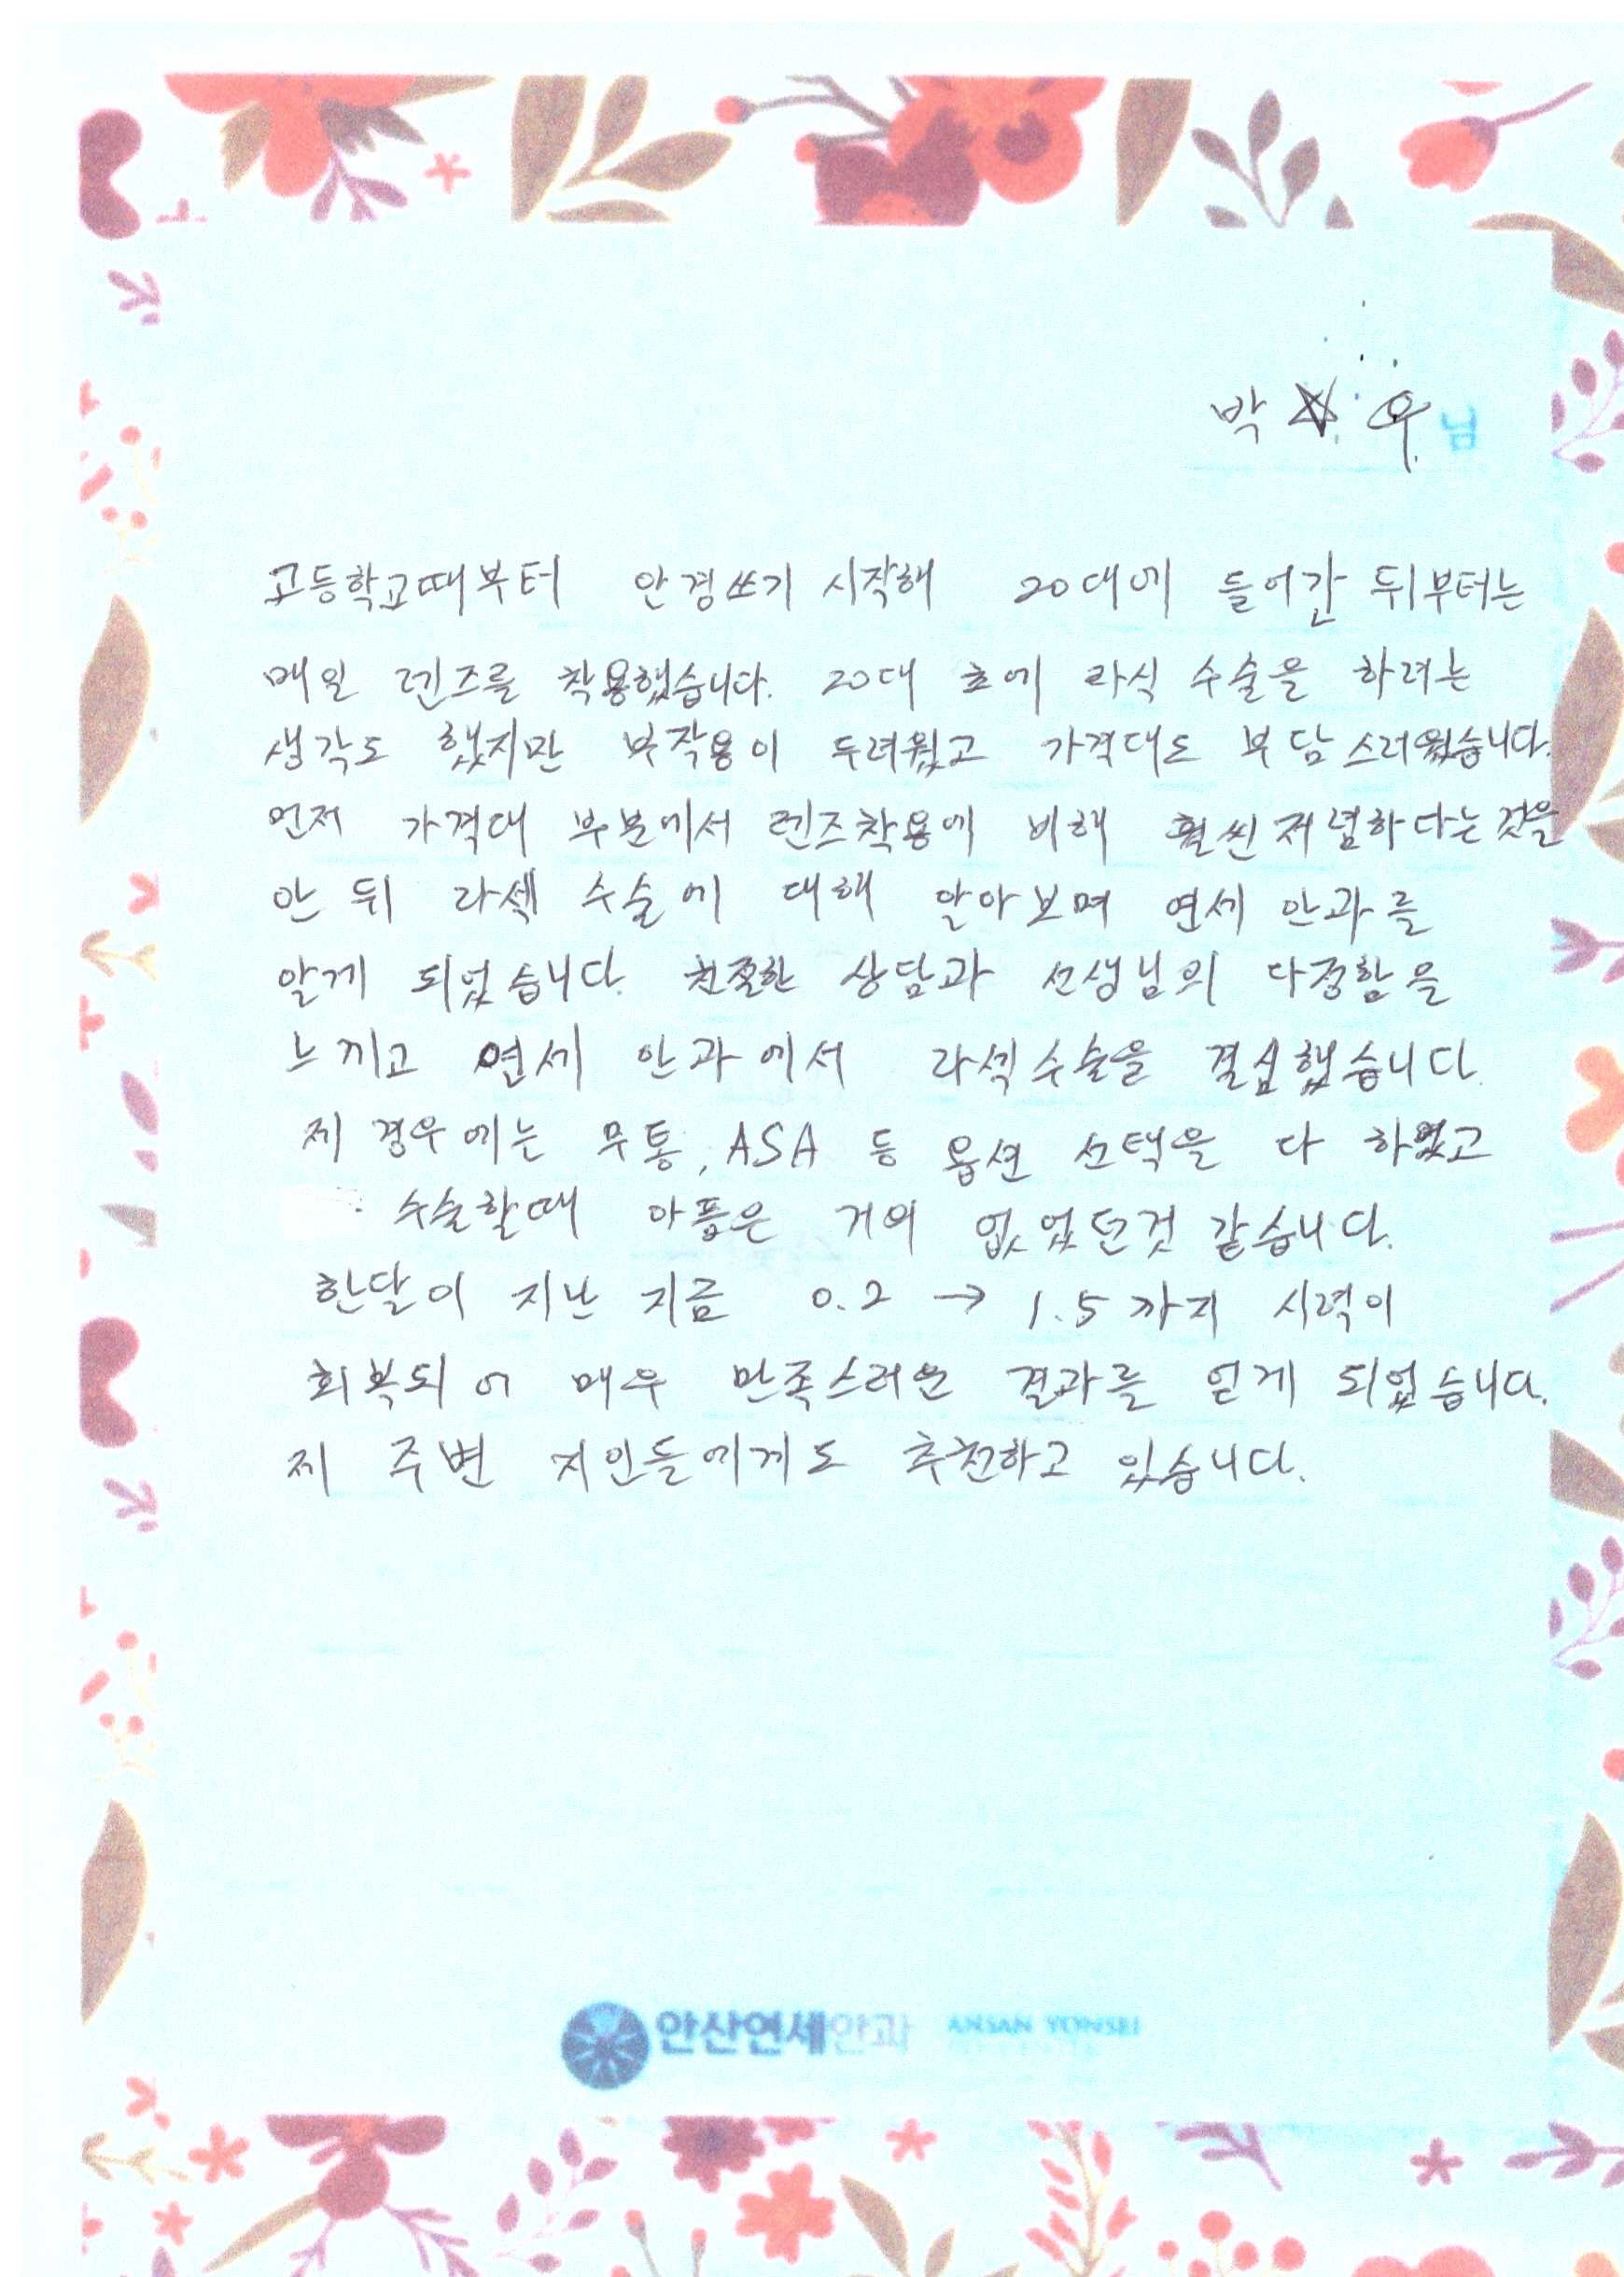 박☆우님
고등학교때부터 안경쓰기 시작해 20대에 들어간 뒤부터는
매일 렌즈를 착용했습니다. 20대 초에 라식 수술을 하려는
생각도 했지만 부작용이 두려웠고 가격대도 부담스러웠습니다.
먼저 가격대 부분에서 렌즈착용에 비해 훨씬 저렴하다는 것을
안 뒤 라섹 수술에 대해 알아보며 연세 안과를
알게 되었습니다. 친절한 상담과 선생님의 다정함을
느끼고 연세 안과에서 라섹수술을 결심했습니다.
제 경우에는 무통, ASA 등 옵션 선택을 다 하였고
수술할때 아픔은 거의 없었던것 같습니다.
한달이 지난 지금 0.2 → 1.5까지 시력이
회복되어 매우 만족스러운 결과를 얻게 되었습니다.
제 주변 지인들에게도 추천하고 있습니다.
안산연세안과 ANSAN YONSEI